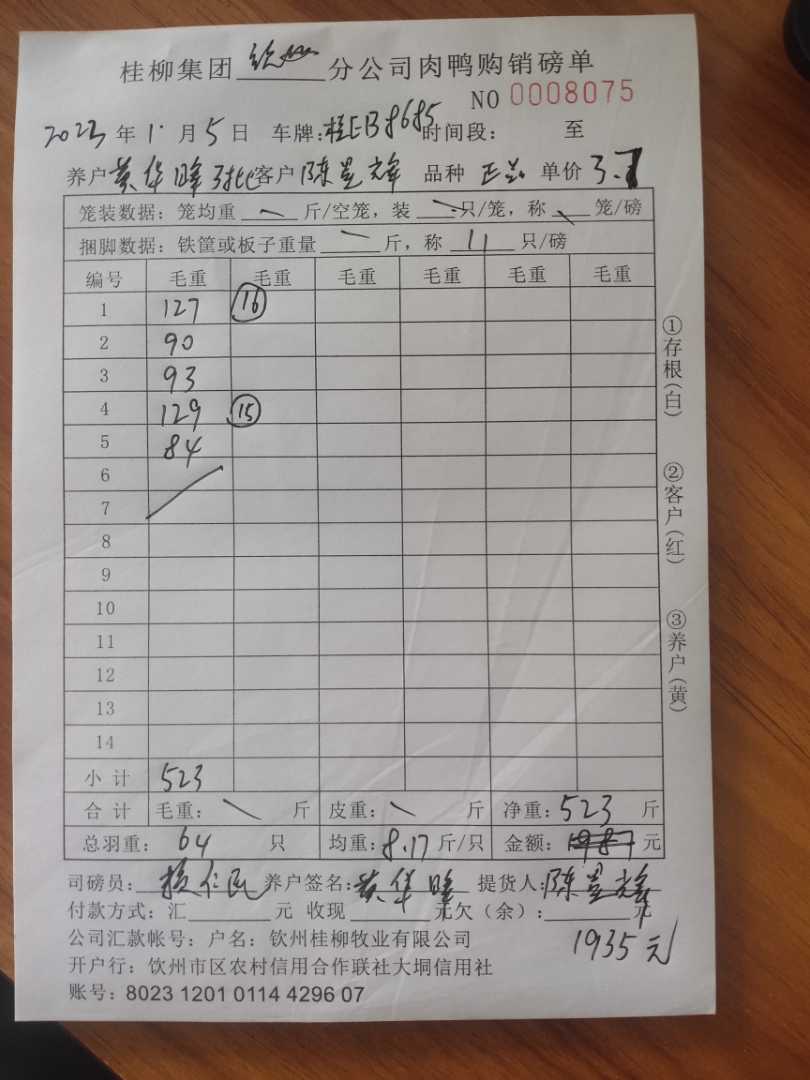 桂柳集团 钦州 分公司肉鸭购销磅单
NO 0008075
2023 年 1 月 5 日 车牌:桂EB8685 时间段: 至
养户 黄华 客户 陈 品种 正品 单价 3.7
笼装数据:笼均重 斤/空笼,装 只/笼,称 笼/磅
捆脚数据:铁筐或板子重量 斤,称 11 只/磅
编号 毛重 毛重 毛重 毛重 毛重 毛重
1 127 16
2 90
3 93
4 129 15
5 84
6
7
8
9
10
11
12
13
14
小计 523
合计 毛重: 斤 皮重: 斤 净重:523 斤
总羽重: 64 只 均重:8.17 斤/只 金额: 元
司磅员: 仁民 养户签名:黄华 提货人:陈
付款方式:汇 元 收现 元欠(余): 元
1935元
公司汇款帐号:户名:钦州桂柳牧业有限公司
开户行:钦州市区农村信用合作联社大垌信用社
账号:8023 1201 0114 4296 07
①存根(白)
②客户(红)
③养户(黄)